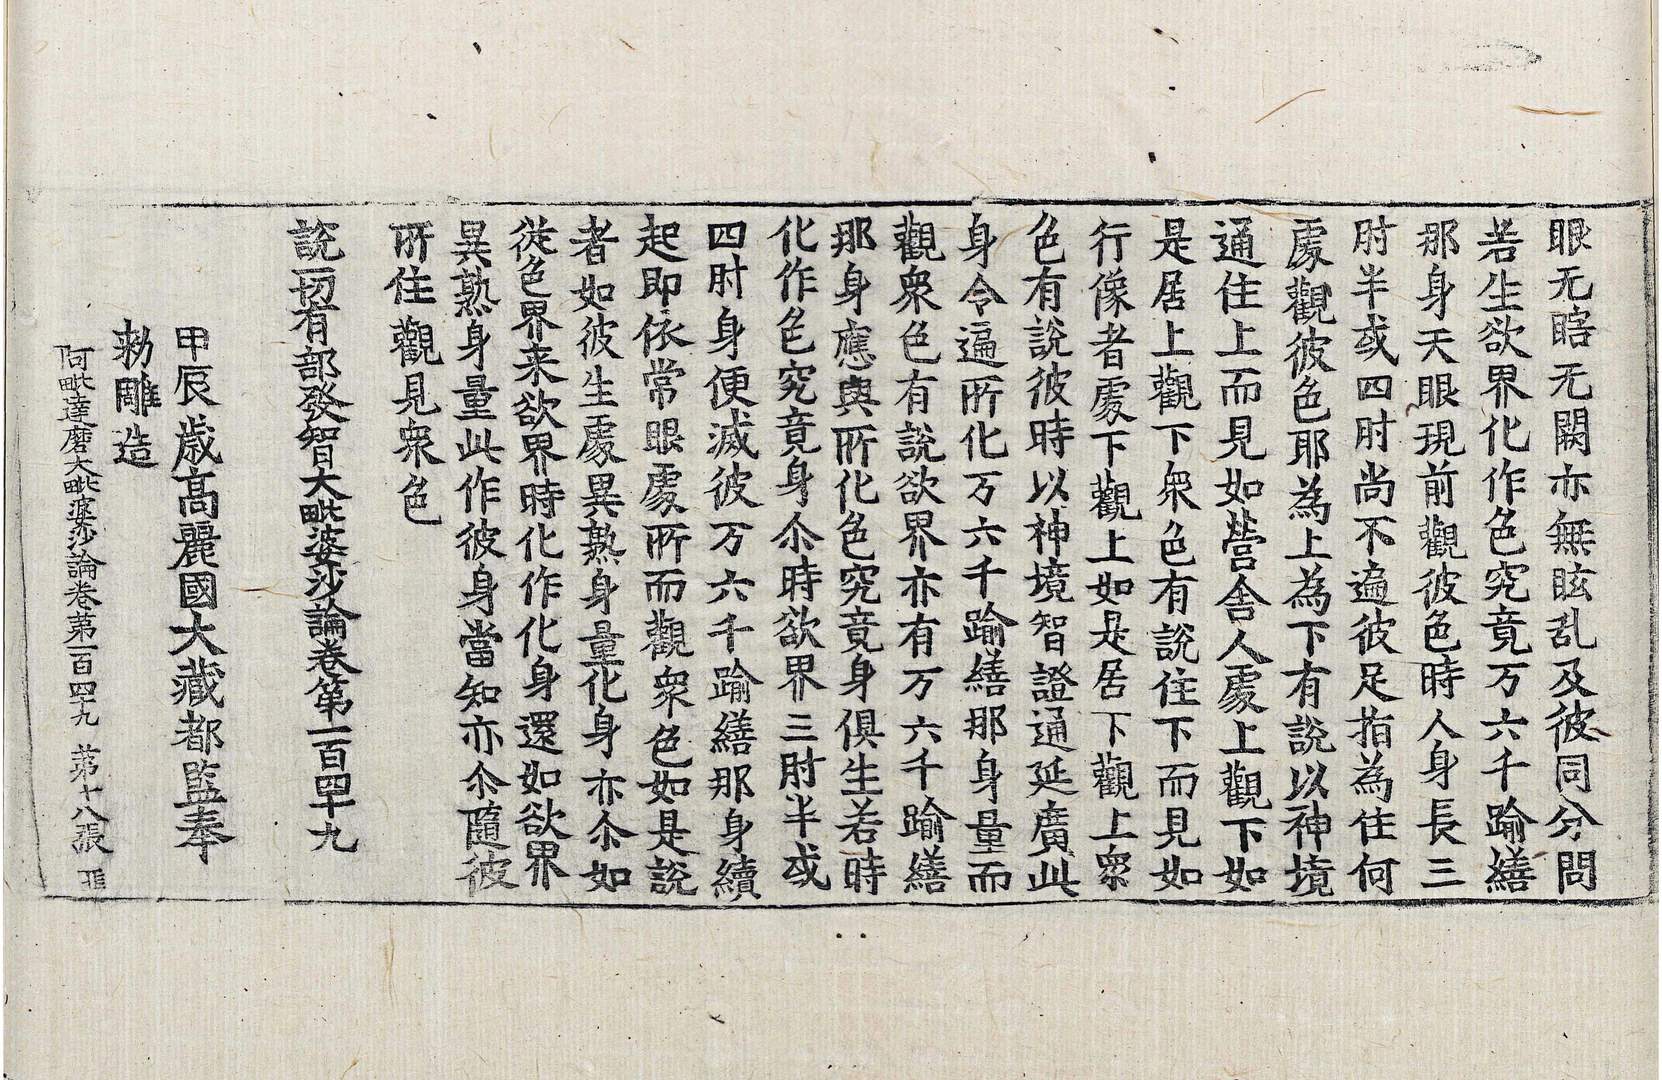 眼无瞎无闕亦無眩乱及彼同分問
若生欲界化作色究竟万六千踰繕
那身天眼現前觀彼色時人身長三
肘半或四肘尚不遍彼足指為住何
處觀彼色耶為上為下有說以神境
通住上而見如營舍人處上觀下如
是居上觀下衆色有說住下而見如
行像者處下觀上如是居下觀上衆
色有說彼時以神境智證通延廣此
身令遍所化万六千踰繕那身量而
觀衆色有說欲界亦有万六千踰繕
那身應與所化色究竟身俱生若時
化作色究竟身尒時欲界三肘半或
四肘身便滅彼万六千踰繕那身續
起即依常眼處所而觀衆色如是說
者如彼生處異熟身量化身亦尒如
從色界来欲界時化作化身還如欲界
異熟身量此作彼身當知亦尒隨彼
所住觀見衆色
說一切有部發智大毗婆沙論卷第一百四十九
甲辰歲高麗國大藏都監奉
勑雕造
阿毗達磨大毗婆沙論卷第一百四十九 第十八張